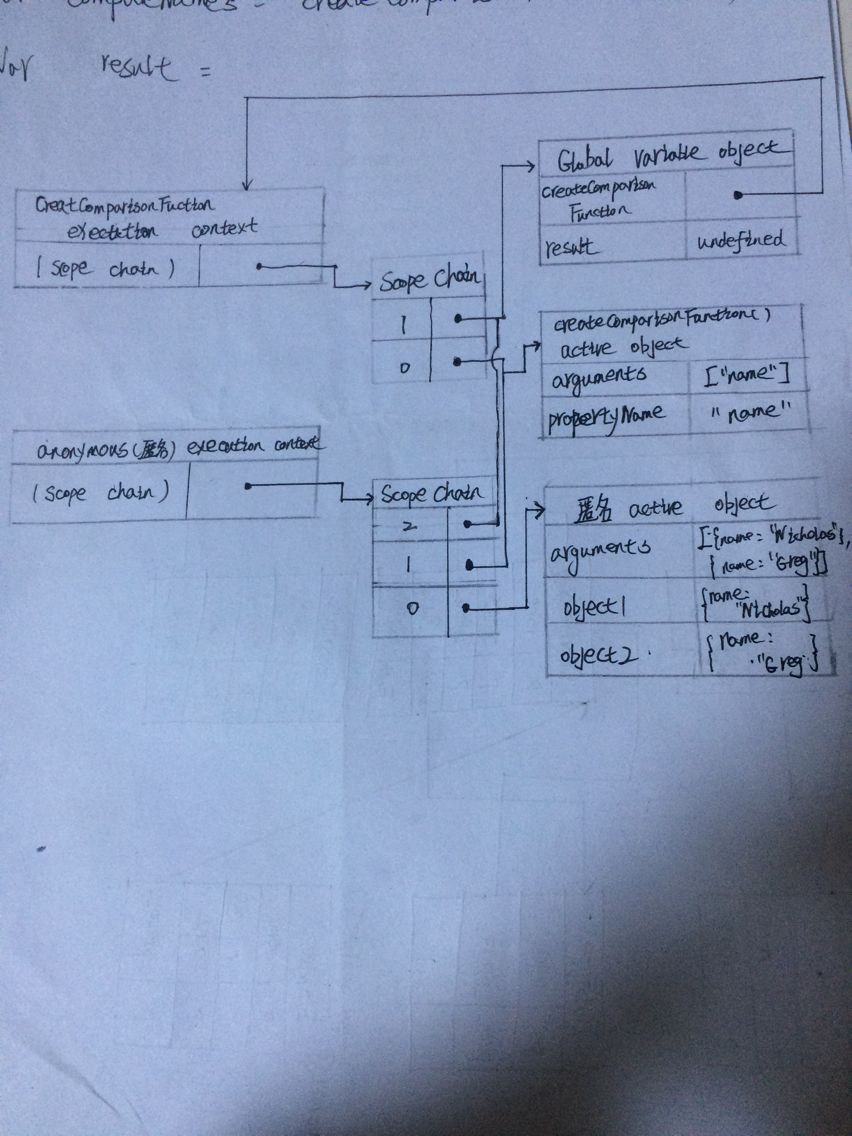 result =
Global variable object
createComparison
Function
result undefined
CreatComparisonFuction
execution context
(Scope chain)
Scope Chain
1
0
createComparisonFunction()
active object
arguments ["name"]
propertyName "name"
anonymous(匿名) execution context
(Scope chain)
Scope Chain
2
1
0
匿名 active object
arguments [{name: "Nicholas"},
{name: "Greg"}]
object1 {name:
"Nicholas"}
object2 {name:
"Greg}